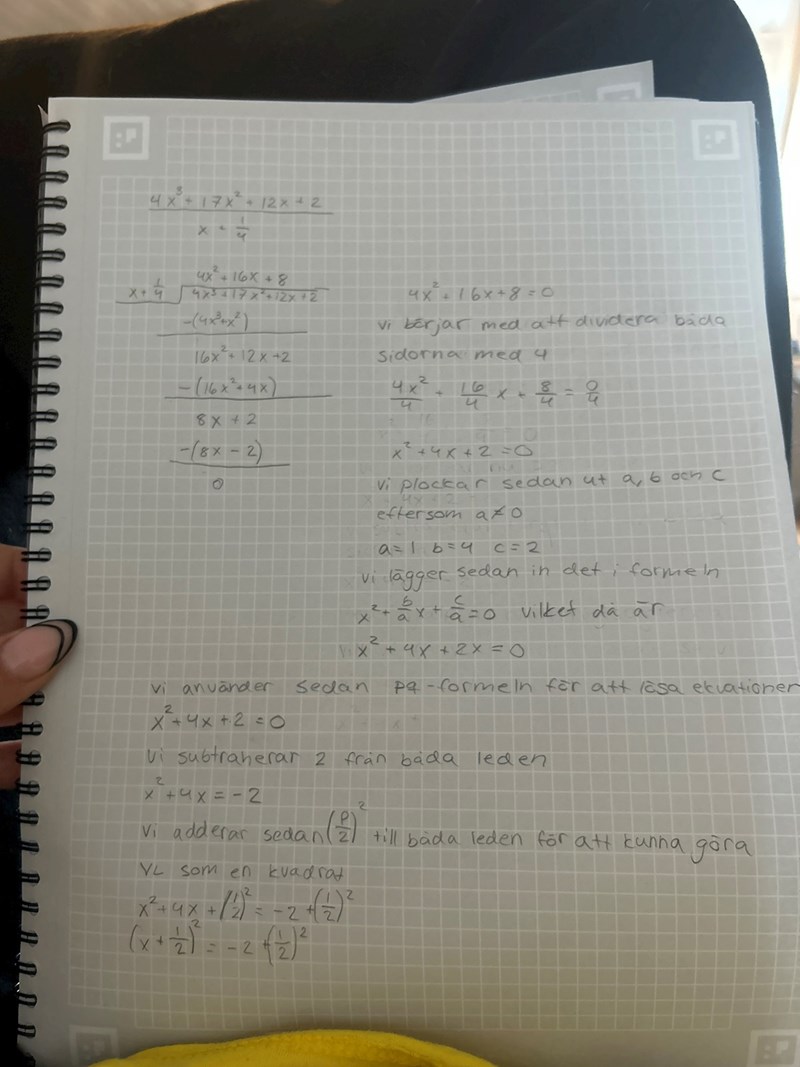 4x³ + 17x² + 12x + 2
x + 1/4
4x² + 16x + 8
x + 1/4 √4x³ + 17x² + 12x + 2
-(4x³+x²)
16x² + 12x + 2
-(16x² + 4x)
8x + 2
-(8x - 2)
0
4x² + 16x + 8 = 0
vi börjar med att dividera båda
sidorna med 4
4x²/4 + 16/4 x + 8/4 = 0/4
x² + 4x + 2 = 0
vi plockar sedan ut a, b och c
eftersom a ≠ 0
a = 1 b = 4 c = 2
vi lägger sedan in det i formeln
x² + b/a x + c/a = 0 vilket då är
x² + 4x + 2x = 0
vi använder sedan pq-formeln för att lösa ekvationen
x² + 4x + 2 = 0
vi subtraherar 2 från båda leden
x² + 4x = -2
vi adderar sedan (p/2)² till båda leden för att kunna göra
VL som en kvadrat
x² + 4x + (1/2)² = -2 + (1/2)²
(x + 1/2)² = -2 + (1/2)²